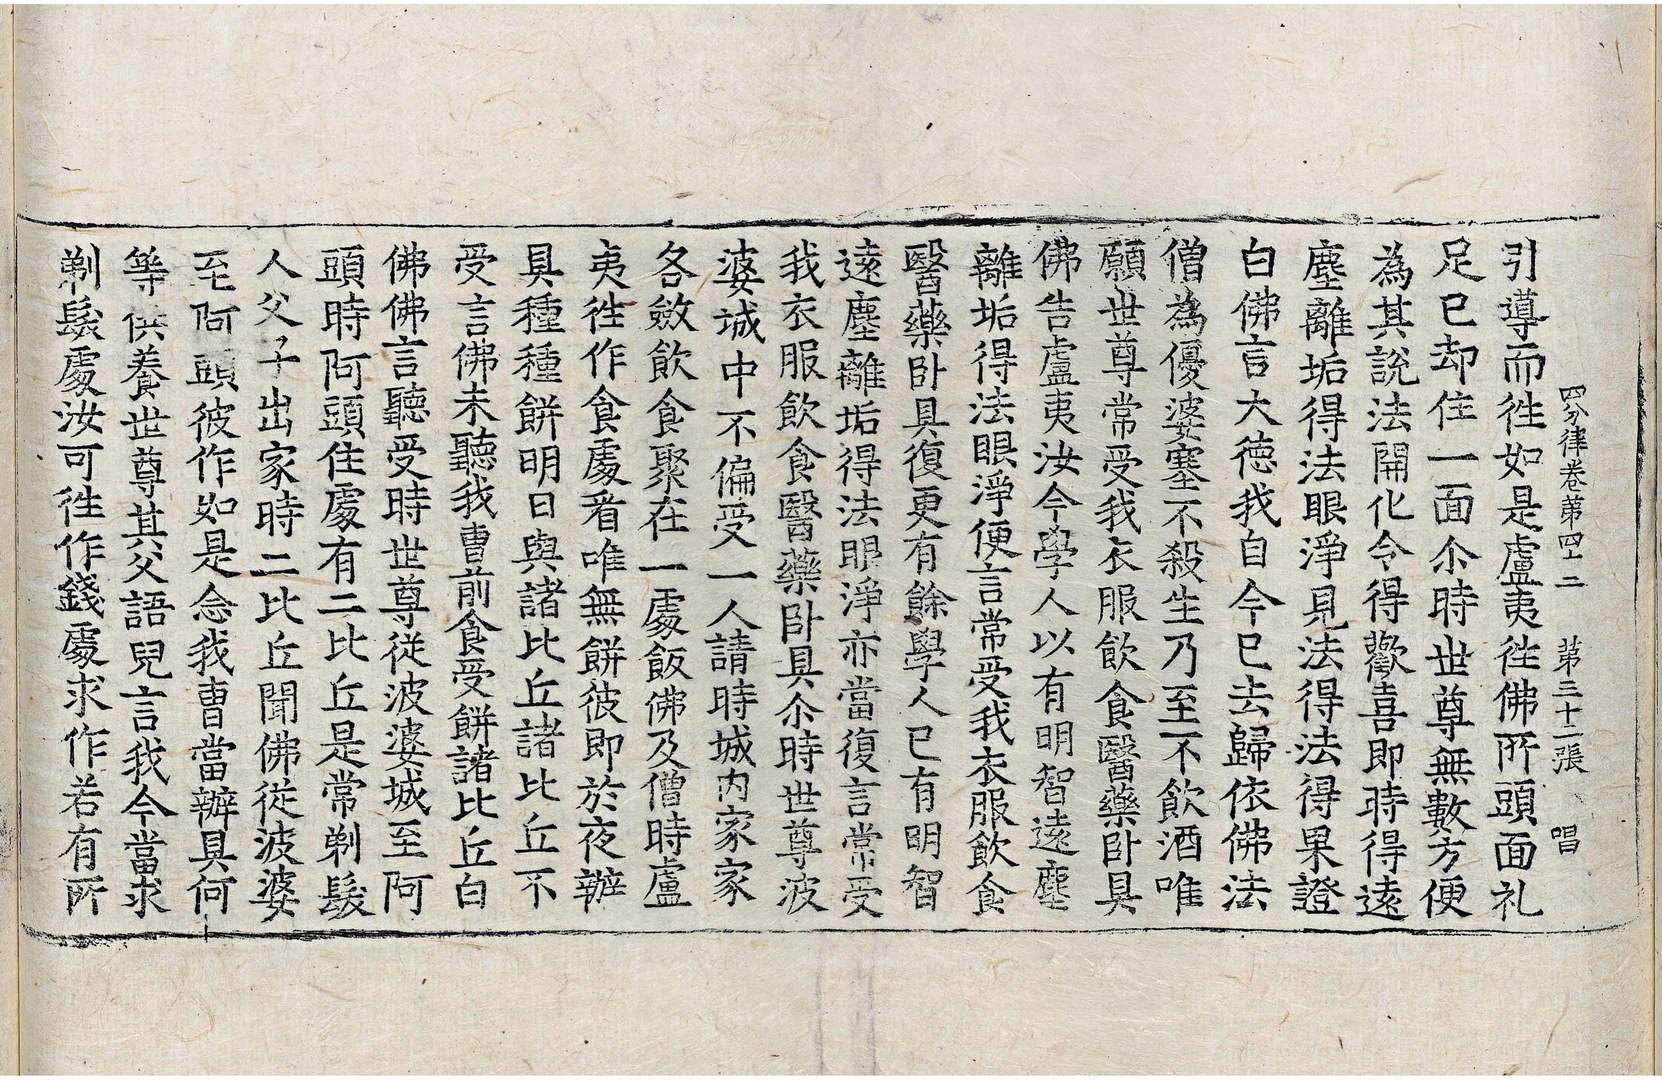 四分律卷苐四十二 苐三十二張 唱
引導而徃如是盧夷徃佛所頭面礼
足已却住一面尒時世尊無數方便
為其說法開化令得歡喜即時得遠
塵離垢得法眼淨見法得法得果證
白佛言大德我自今已去歸依佛法
僧為優婆塞不殺生乃至不飲酒唯
願世尊常受我衣服飲食醫藥卧具
佛告盧夷汝今學人以有明智遠塵
離垢得法眼淨便言常受我衣服飲食
醫藥卧具復更有餘學人已有明智
遠塵離垢得法眼淨亦當復言常受
我衣服飲食醫藥卧具尒時世尊波
婆城中不偏受一人請時城內家家
各斂飲食聚在一處飯佛及僧時盧
夷徃作食處看唯無餅彼即於夜辦
具種種餅明日與諸比丘諸比丘不
受言佛未聽我曹前食受餅諸比丘白
佛佛言聽受時世尊從波婆城至阿
頭時阿頭住處有二比丘是常剃髮
人父子出家時二比丘聞佛從波婆
至阿頭彼作如是念我曹當辦具何
等供養世尊其父語兒言我今當求
剃髮處汝可徃作錢處求作若有所